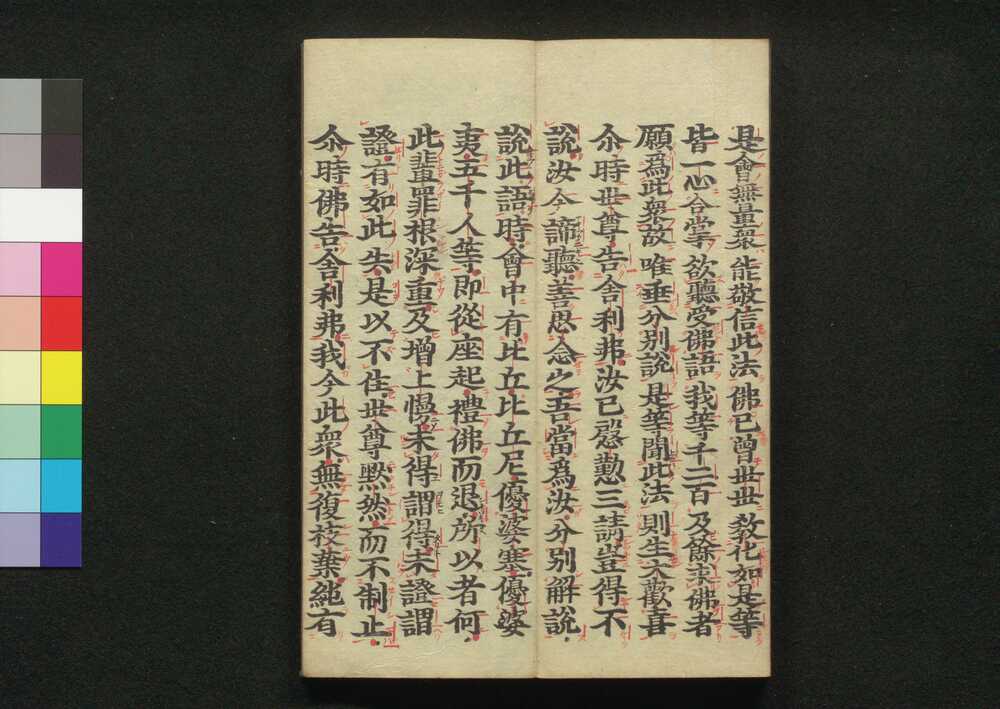 是會無量衆 能敬信此法 佛已曾世世 教化如是等
皆一心合掌 欲聽受佛語 我等千二百 及餘求佛者
願爲此衆故 唯垂分別說 是等聞此法 則生大歡喜
尒時世尊告舎利弗汝已慇懃三請豈得不
說汝今諦聽善思念之吾當爲汝分別解說
說此語時會中有比丘比丘尼優婆塞優婆
夷五千人等即從座起禮佛而退所以者何
此輩罪根深重及增上慢未得謂得未證謂
證有如此失是以不住世尊默然而不制止
尒時佛告舎利弗我今此衆無復枝葉純有